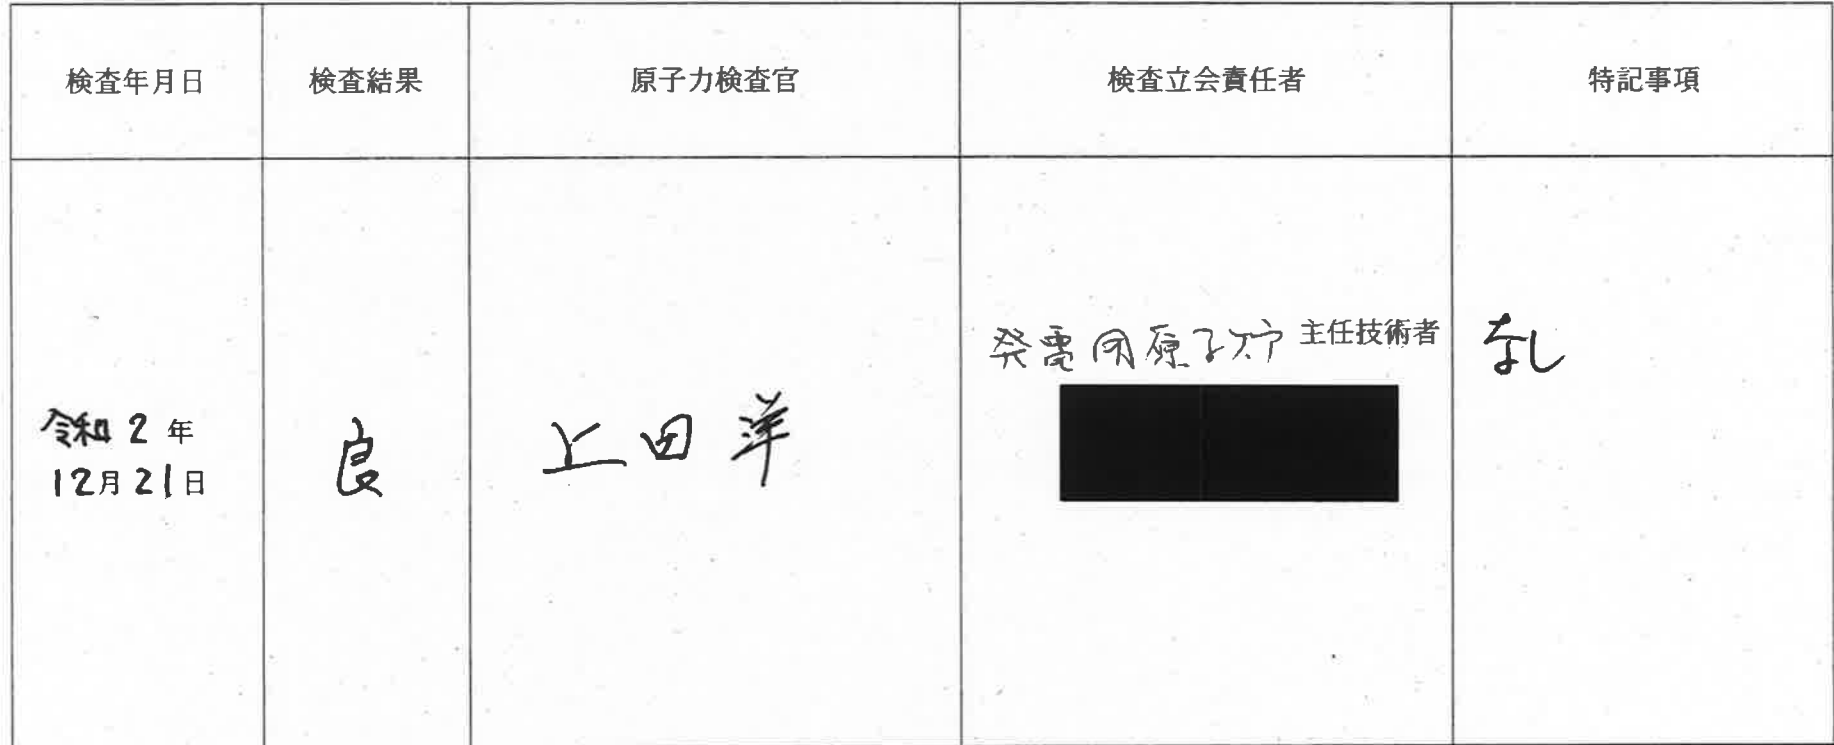 検査年月日
検査結果
原子力検査官
検査立会責任者
特記事項
令和2年
12月21日
良
上田洋
発電用原子炉主任技術者
なし